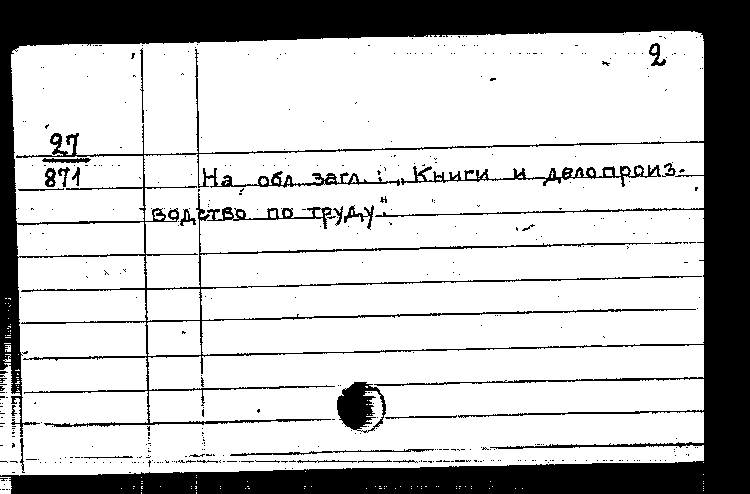 2
27
871
На обл. загл.: „Книги и делопроиз-
водство по труду".